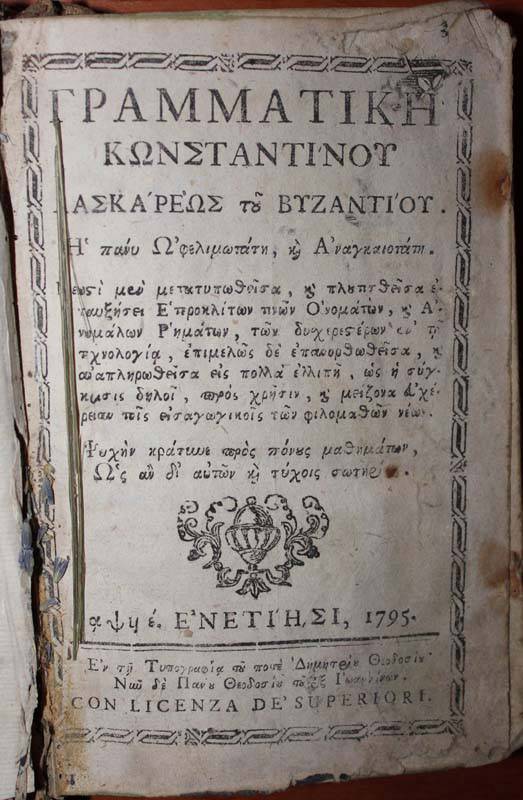 ΓΡΑΜΜΑΤΙΚΗ
ΚΩΝΣΤΑΝΤΙΝΟΥ
ΛΑΣΚΑ'ΡΕΩΣ τοῦ ΒΥΖΑΝΤΙ'ΟΥ.
Ἡ πάνυ Ὠφελιμωτάτη, καὶ Ἀναγκαιοτάτη.
Νεωστὶ μὲν μετατυπωθεῖσα, καὶ πλουτισθεῖσα ἐν
ἐπαυξήσει Ἑτεροκλίτων τινῶν Ὀνομάτων, καὶ Ἀ-
νωμάλων Ῥημάτων, τῶν δυσχερεστέρων ἐν τῇ
τεχνολογίᾳ, ἐπιμελῶς δὲ ἐπανορθωθεῖσα, καὶ
ἀναπληρωθεῖσα εἰς πολλὰ ἐλλιπῆ, ὡς ἡ σύγ-
κρισις δηλοῖ, πρὸς χρῆσιν, καὶ μείζονα εὐχέ-
ρειαν τοῖς εἰσαγωγικοῖς τῶν φιλομαθῶν νέων.
Ψυχὴν κράτυνε πρὸς πόνους μαθημάτων,
Ὡς ἂν δι' αὐτῶν καὶ τύχοις σωτηρίας.
αψϟέ. ἘΝΕΤΙΉΣΙ, 1795.
Ἐν τῇ Τυπογραφίᾳ τοῦ ποτὲ Δημητρίου Θεοδοσίου
Νῦν δὲ Πάνου Θεοδοσίου τοῦ ἐξ Ἰωαννίνων.
CON LICENZA DE' SUPERIORI.